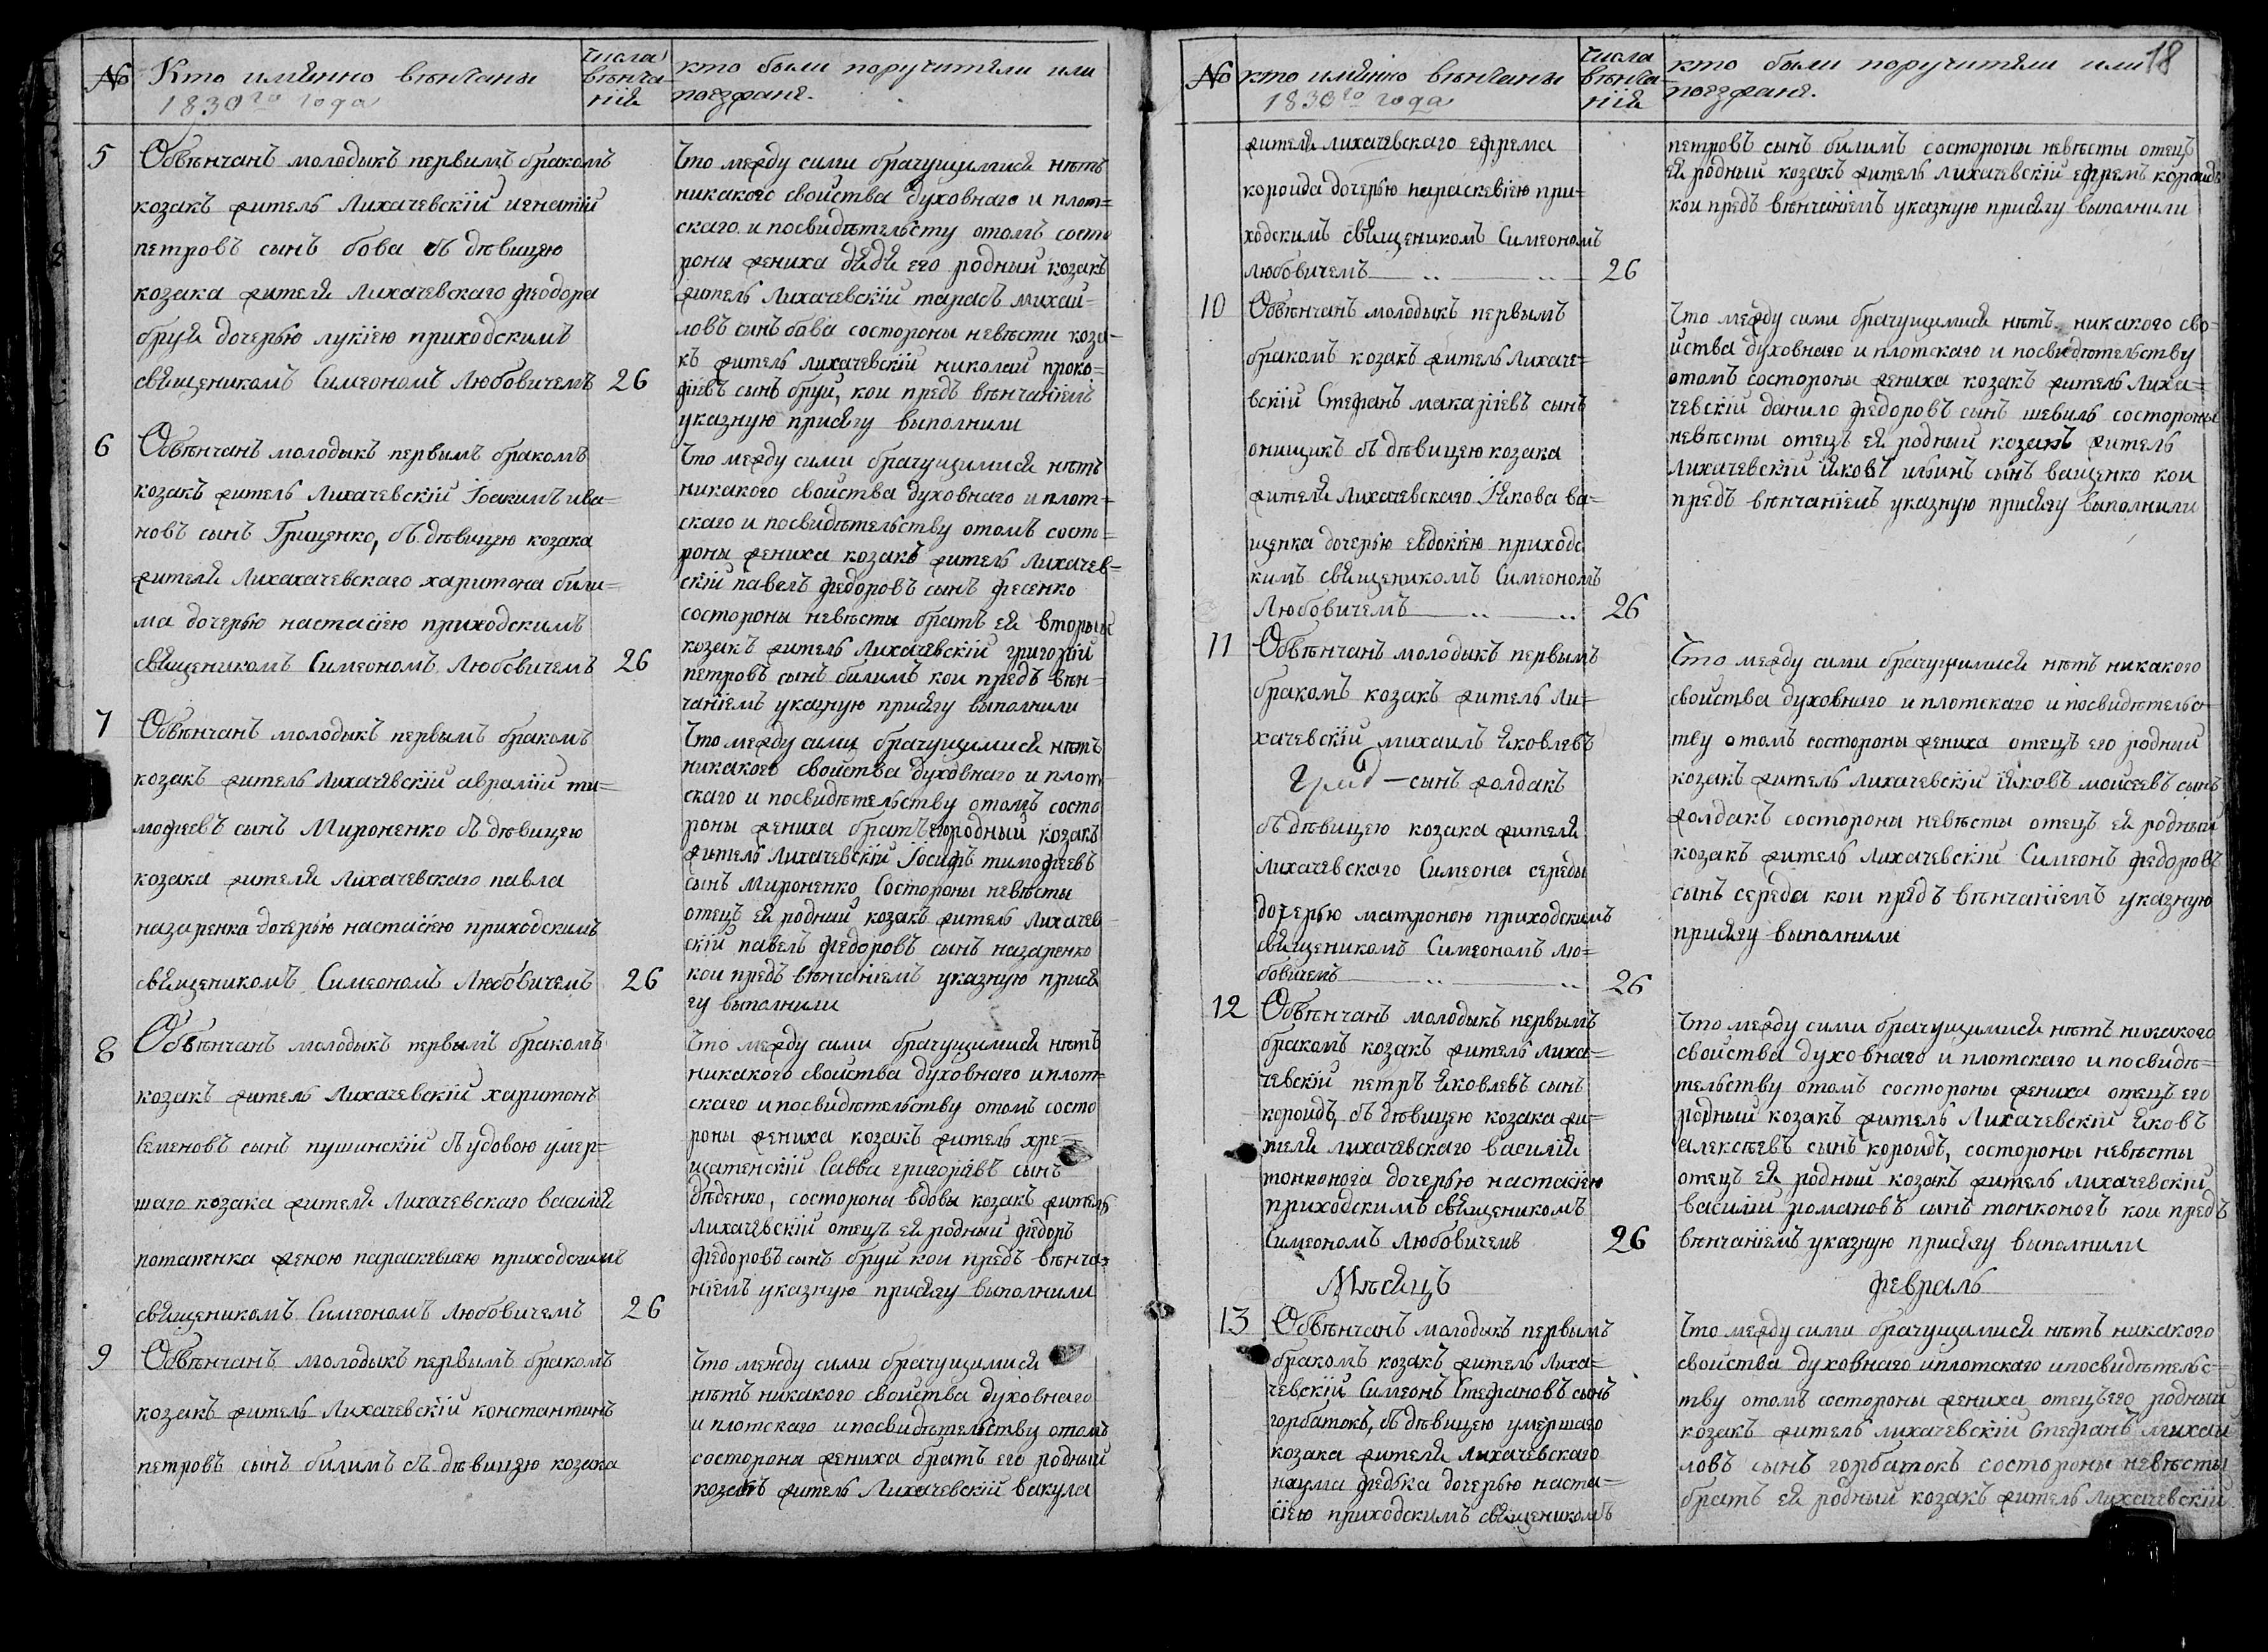 №
Кто имянно вѣнчаны
1830го года
числа вѣнча-
нія
кто были поручители или
поезжане.
5
Обвѣнчанъ молодыкъ первимъ бракомъ
козакъ житель Лихачевскій игнатій
петровъ сынъ бова съ дѣвицею
козака жителя Лихачевскаго феодора
бруя дочерью лукіею приходскимъ
священикомъ Симеономъ Любовичемъ 26
Что между сими брачущимися нѣтъ
никакого свойства духовнаго и плот=
скаго и посвидѣтельсту отомъ состо
роны жениха дядя его родний козакъ
житель Лихачевскій тарасъ михай=
ловъ сынъ бова состороны невѣсти коза-
къ житель лихачевскій николай проко=
фіевъ сынъ бруй, кои предъ вѣнчаніемъ
указную присягу выполнили
6
Обвѣнчанъ молодыкъ первымъ бракомъ
козакъ житель Лихачевскій Іоакимъ ива=
новъ сынъ Гриценко, съ дѣвицею козака
жителя Лихахачевскаго харитона били=
ма дочерью настасіею приходскимъ
священикомъ Симеономъ Любовичемъ 26
Что между сими брачущимися нѣтъ
никакого свойства духовнаго и плот=
скаго и посвидѣтельству отомъ состо=
роны жениха козакъ житель Лихачев=
скій павелъ федоровъ сынъ фесенко
состороны невѣсты братъ ея вторый
козакъ житель Лихачевскій григорій
петровъ сынъ билимъ кои предъ вѣн=
чаніемъ указную присягу выполнили
7
Обвѣнчанъ молодыкъ первымъ бракомъ
козакъ житель Лихачевскій аврамій ти=
мофеевъ сынъ Мироненко съ дѣвицею
козака жителя Лихачевскаго павла
назаренка дочерью настасіею приходскимъ
священикомъ Симеономъ Любовичемъ 26
Что между сими брачущимися нѣтъ
никакого свойства духовнаго и плот=
скаго и посвидѣтельству отомъ состо
роны жениха братъ его родный козакъ
житель Лихачевскій Іосифъ тимофеевъ
сынъ Мироненко Состороны невѣсты
отецъ ея родний козакъ житель Лихачев
скій павелъ федоровъ сынъ назаренко
кои предъ вѣнчаніемъ указную прися
гу выполнили
8
Обвѣнчанъ молодыкъ первымъ бракомъ
козакъ житель Лихачевскій харитонъ
Семеновъ сынъ пушинскій съ удовою умер=
шаго козака жителя Лихачевскаго василія
потапенка женою параскевиею приходскимъ
священикомъ Симеономъ Любовичемъ 26
Что между сими брачущимися нѣтъ
никакого свойства духовнаго и плот=
скаго и посвидѣтельству отомъ состо
роны жениха козакъ житель хре=
щатенскій Савва григоріевъ сынъ
дѣденко, состороны вдовы козакъ житель
Лихачевскій отецъ ея родный федоръ
федоровъ сынъ бруй кои предъ вѣнча=
ніемъ указную присягу выполнили
9
Обвѣнчанъ молодыкъ первымъ бракомъ
козакъ житель Лихачевскій константинъ
петровъ сынъ билимъ съ дѣвицею козака
Что между сими брачущимися
нѣтъ никакого свойства духовнаго
и плотскаго и посвидѣтельству отомъ
состороны жениха братъ его родный
козакъ житель Лихачевскій вакула
№
кто имянно вѣнчаны
1830го года
числа
вѣнча-
нія
кто были поручители или
поезжане.
18
жителя лихачевскаго ефрема
короида дочерью параскевіею при=
ходскимъ священикомъ Симеономъ
любовичемъ 26
петровъ сынъ билимъ состороны невѣсты отецъ
ея родный козакъ житель лихачевскій ефремъ короидъ
кои предъ вѣнчаніемъ указную присягу выполнили
10
Обвѣнчанъ молодыкъ первымъ
бракомъ козакъ житель Лихаче=
вскій Стефанъ макаріевъ сынъ
онищикъ съ дѣвицею козака
жителя Лихачевскаго Іякова ва=
щенка дочерью евдокіею приходс
кимъ священикомъ Симеономъ
Любовичемъ 26
Что между сими брачущимися нѣтъ никакого сво=
йства духовнаго и плотскаго и посвидѣтельству
отомъ состороны жениха козакъ житель Лиха=
чевскій данило федоровъ сынъ шевиль состороны
невѣсты отецъ ея родный козакъ житель
лихачевскій яковъ ильинъ сынъ ващенко кои
предъ вѣнчаніемъ указную присягу выполнили
11
Обвѣнчанъ молодыкъ первымъ
бракомъ козакъ житель Ли=
хачевскій михаилъ яковлевъ
сынъ жолдакъ
съ дѣвицею козака жителя
лихачевскаго Симеона середы
дочерью матроною приходскимъ
священикомъ Симеономъ Лю=
бовичемъ 26
Что между сими брачущимися нѣтъ никакого
свойства духовнаго и плотскаго и посвидѣтельс-
тву отомъ состороны жениха отецъ его родний
козакъ житель лихачевскій іяковъ моисеевъ сынъ
жолдакъ состороны невѣсты отецъ ея родный
козакъ житель Лихачевскій Симеонъ федоровъ
сынъ середа кои предъ вѣнчаніемъ указную
присягу выполнили
12
Обвѣнчанъ молодыкъ первымъ
бракомъ козакъ житель лиха=
чевскій петръ яковлевъ сынъ
короидъ, съ дѣвицею козака жи=
теля лихачевскаго василія
тонконога дочерью настасіею
приходскимъ священикомъ
Симеономъ Любовичемъ 26
Что между сими брачущимися нѣтъ никакого
свойства духовнаго и плотскаго и посвидѣ=
тельству отомъ состороны жениха отецъ его
родный козакъ житель Лихачевскій яковъ
алексѣевъ сынъ короидъ, состороны невѣсты
отецъ ея родный козакъ житель лихачевскій
василій романовъ сынъ тонконогъ кои предъ
вѣнчаніемъ указную присягу выполнили
Мѣсяцъ февраль
13
Обвѣнчанъ молодыкъ первымъ
бракомъ козакъ житель Лиха=
чевскій Симеонъ Стефановъ сынъ
горбатокъ, съ дѣвицею умершаго
козака жителя Лихачевскаго
наума федька дочерью наста=
сіею приходскимъ священикомъ
Что между сими брачущимися нѣтъ никакого
свойства духовнаго и плотскаго и посвидѣтельс=
тву отомъ состороны жениха отецъ его родный
козакъ житель лихачевскій Стефанъ михай
ловъ сынъ горбатокъ состороны невѣсты
братъ ея родный козакъ житель Лихачевскій